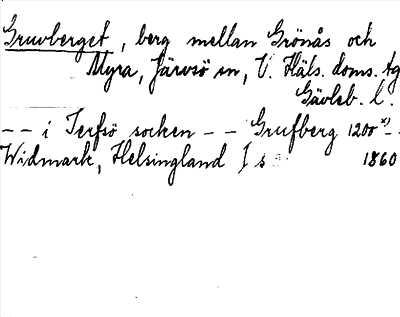 Gruvberget, berg mellan Grönås och
Myra, Järvsö sn, V. Häls. doms. tg
Gävleb. l.
-- i Jerfsö socken -- Grufberg 1200 x) -
Widmark, Helsingland I s 1860